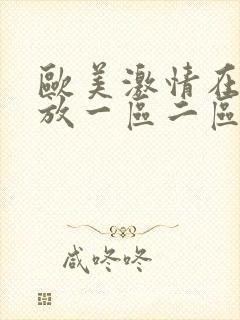 歐美激情在
放一區二區
咸咚咚